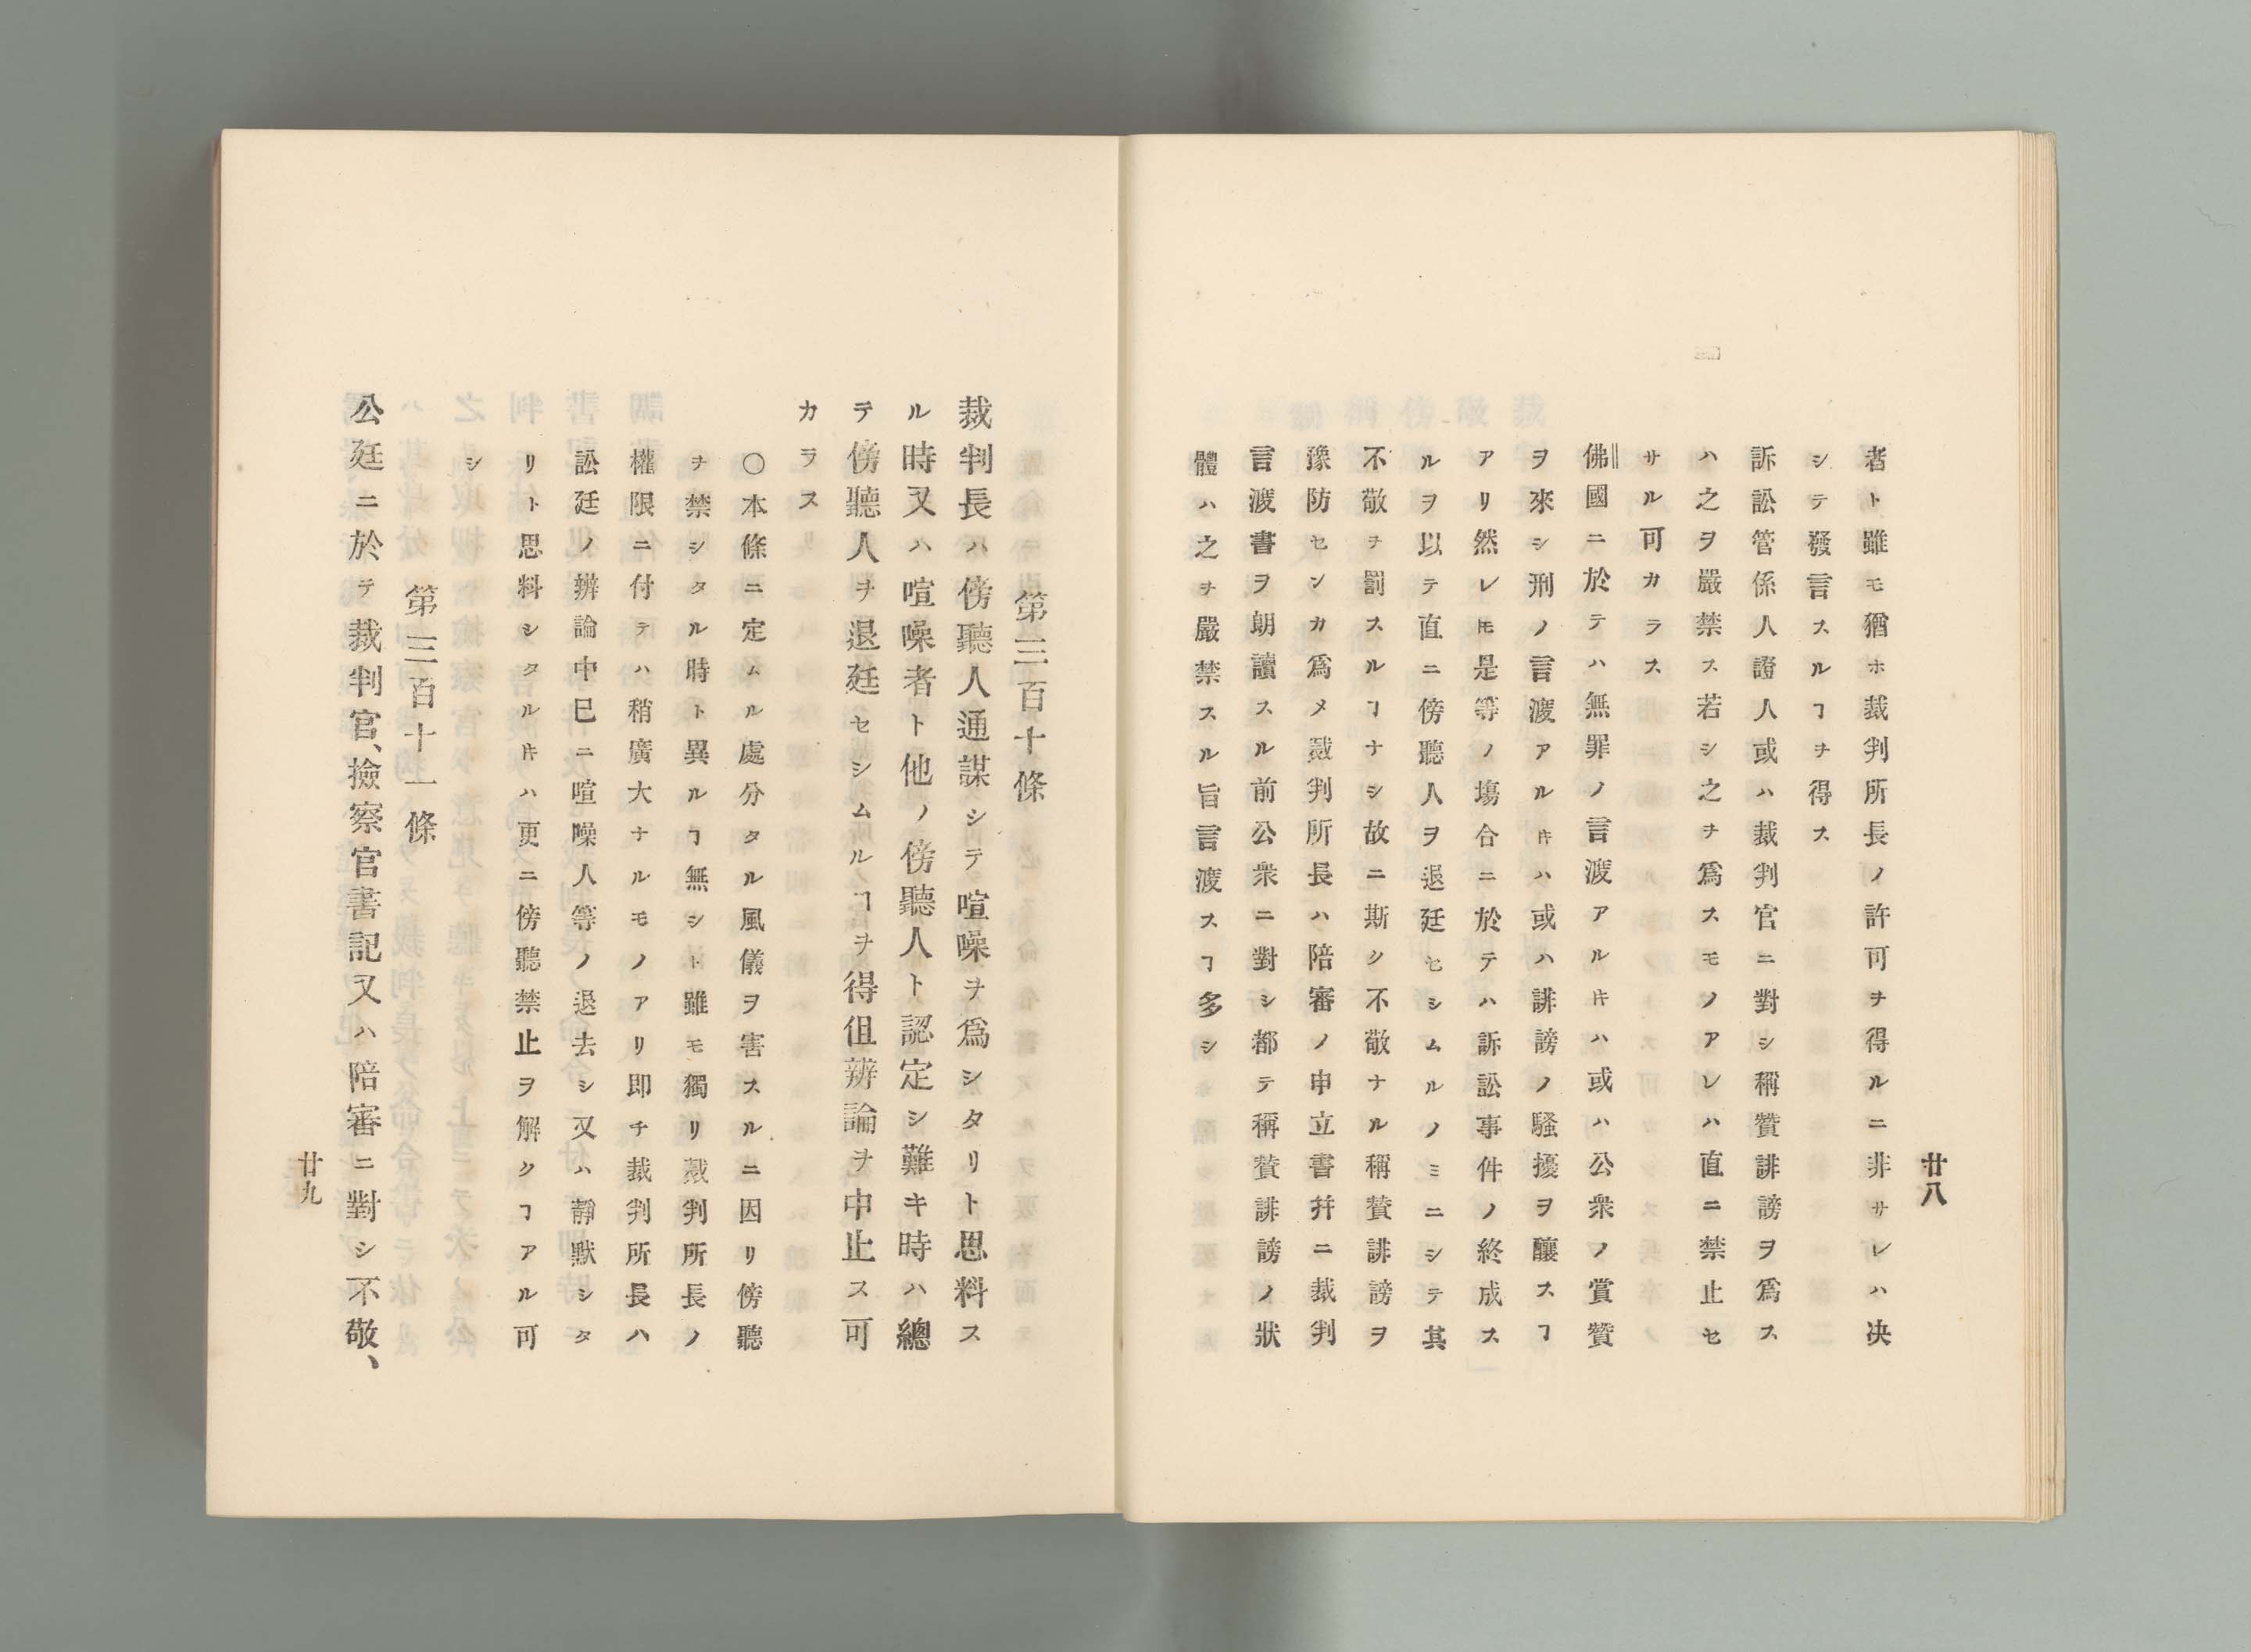 廿八
者ト雖モ猶ホ裁判所長ノ許可ヲ得ルニ非サレハ决
シテ發言スルヿヲ得ス
訴訟管係人證人或ハ裁判官ニ對シ稱賛誹謗ヲ爲ス
ハ之ヲ嚴禁ス若シ之ヲ爲スモノアレハ直ニ禁止セ
サル可カラス
佛國ニ於テハ無罪ノ言渡アルㇳキハ或ハ公衆ノ賞賛
ヲ來シ刑ノ言渡アルㇳキハ或ハ誹謗ノ騷擾ヲ釀スヿ
アリ然レㇳモ是等ノ塲合ニ於テハ訴訟事件ノ終成ス
ルヲ以テ直ニ傍聽人ヲ退廷セシムルノミニシテ其
不敬ヲ罰スルヿナシ故ニ斯ク不敬ナル稱賛誹謗ヲ
豫防センカ爲メ裁判所長ハ陪審ノ申立書幷ニ裁判
言渡書ヲ朗讀スル前公衆ニ對シ都テ稱賛誹謗ノ狀
體ハ之ヲ嚴禁スル旨言渡スヿ多シ
第三百十條
裁判長ハ傍聽人通謀シテ喧噪ヲ爲シタリト思料ス
ル時又ハ喧噪者ト他ノ傍聽人ト認定シ難キ時ハ總
テ傍聽人ヲ退廷セシムルヿヲ得伹辨論ヲ中止ス可
カラス
〇本條ニ定ムル處分タル風儀ヲ害スルニ因リ傍聽
ヲ禁シタル時ト異ルヿ無シト雖モ獨リ裁判所長ノ
權限ニ付テハ稍廣大ナルモノアリ即チ裁判所長ハ
訟廷ノ辨論中巳ニ喧噪人等ノ退去シ又ハ靜默シタ
リト思料シタルㇳキハ更ニ傍聽禁止ヲ解クヿアル可
シ
第三百十一條
公廷ニ於テ裁判官、撿察官書記又ハ陪審ニ對シ不敬、
廿九